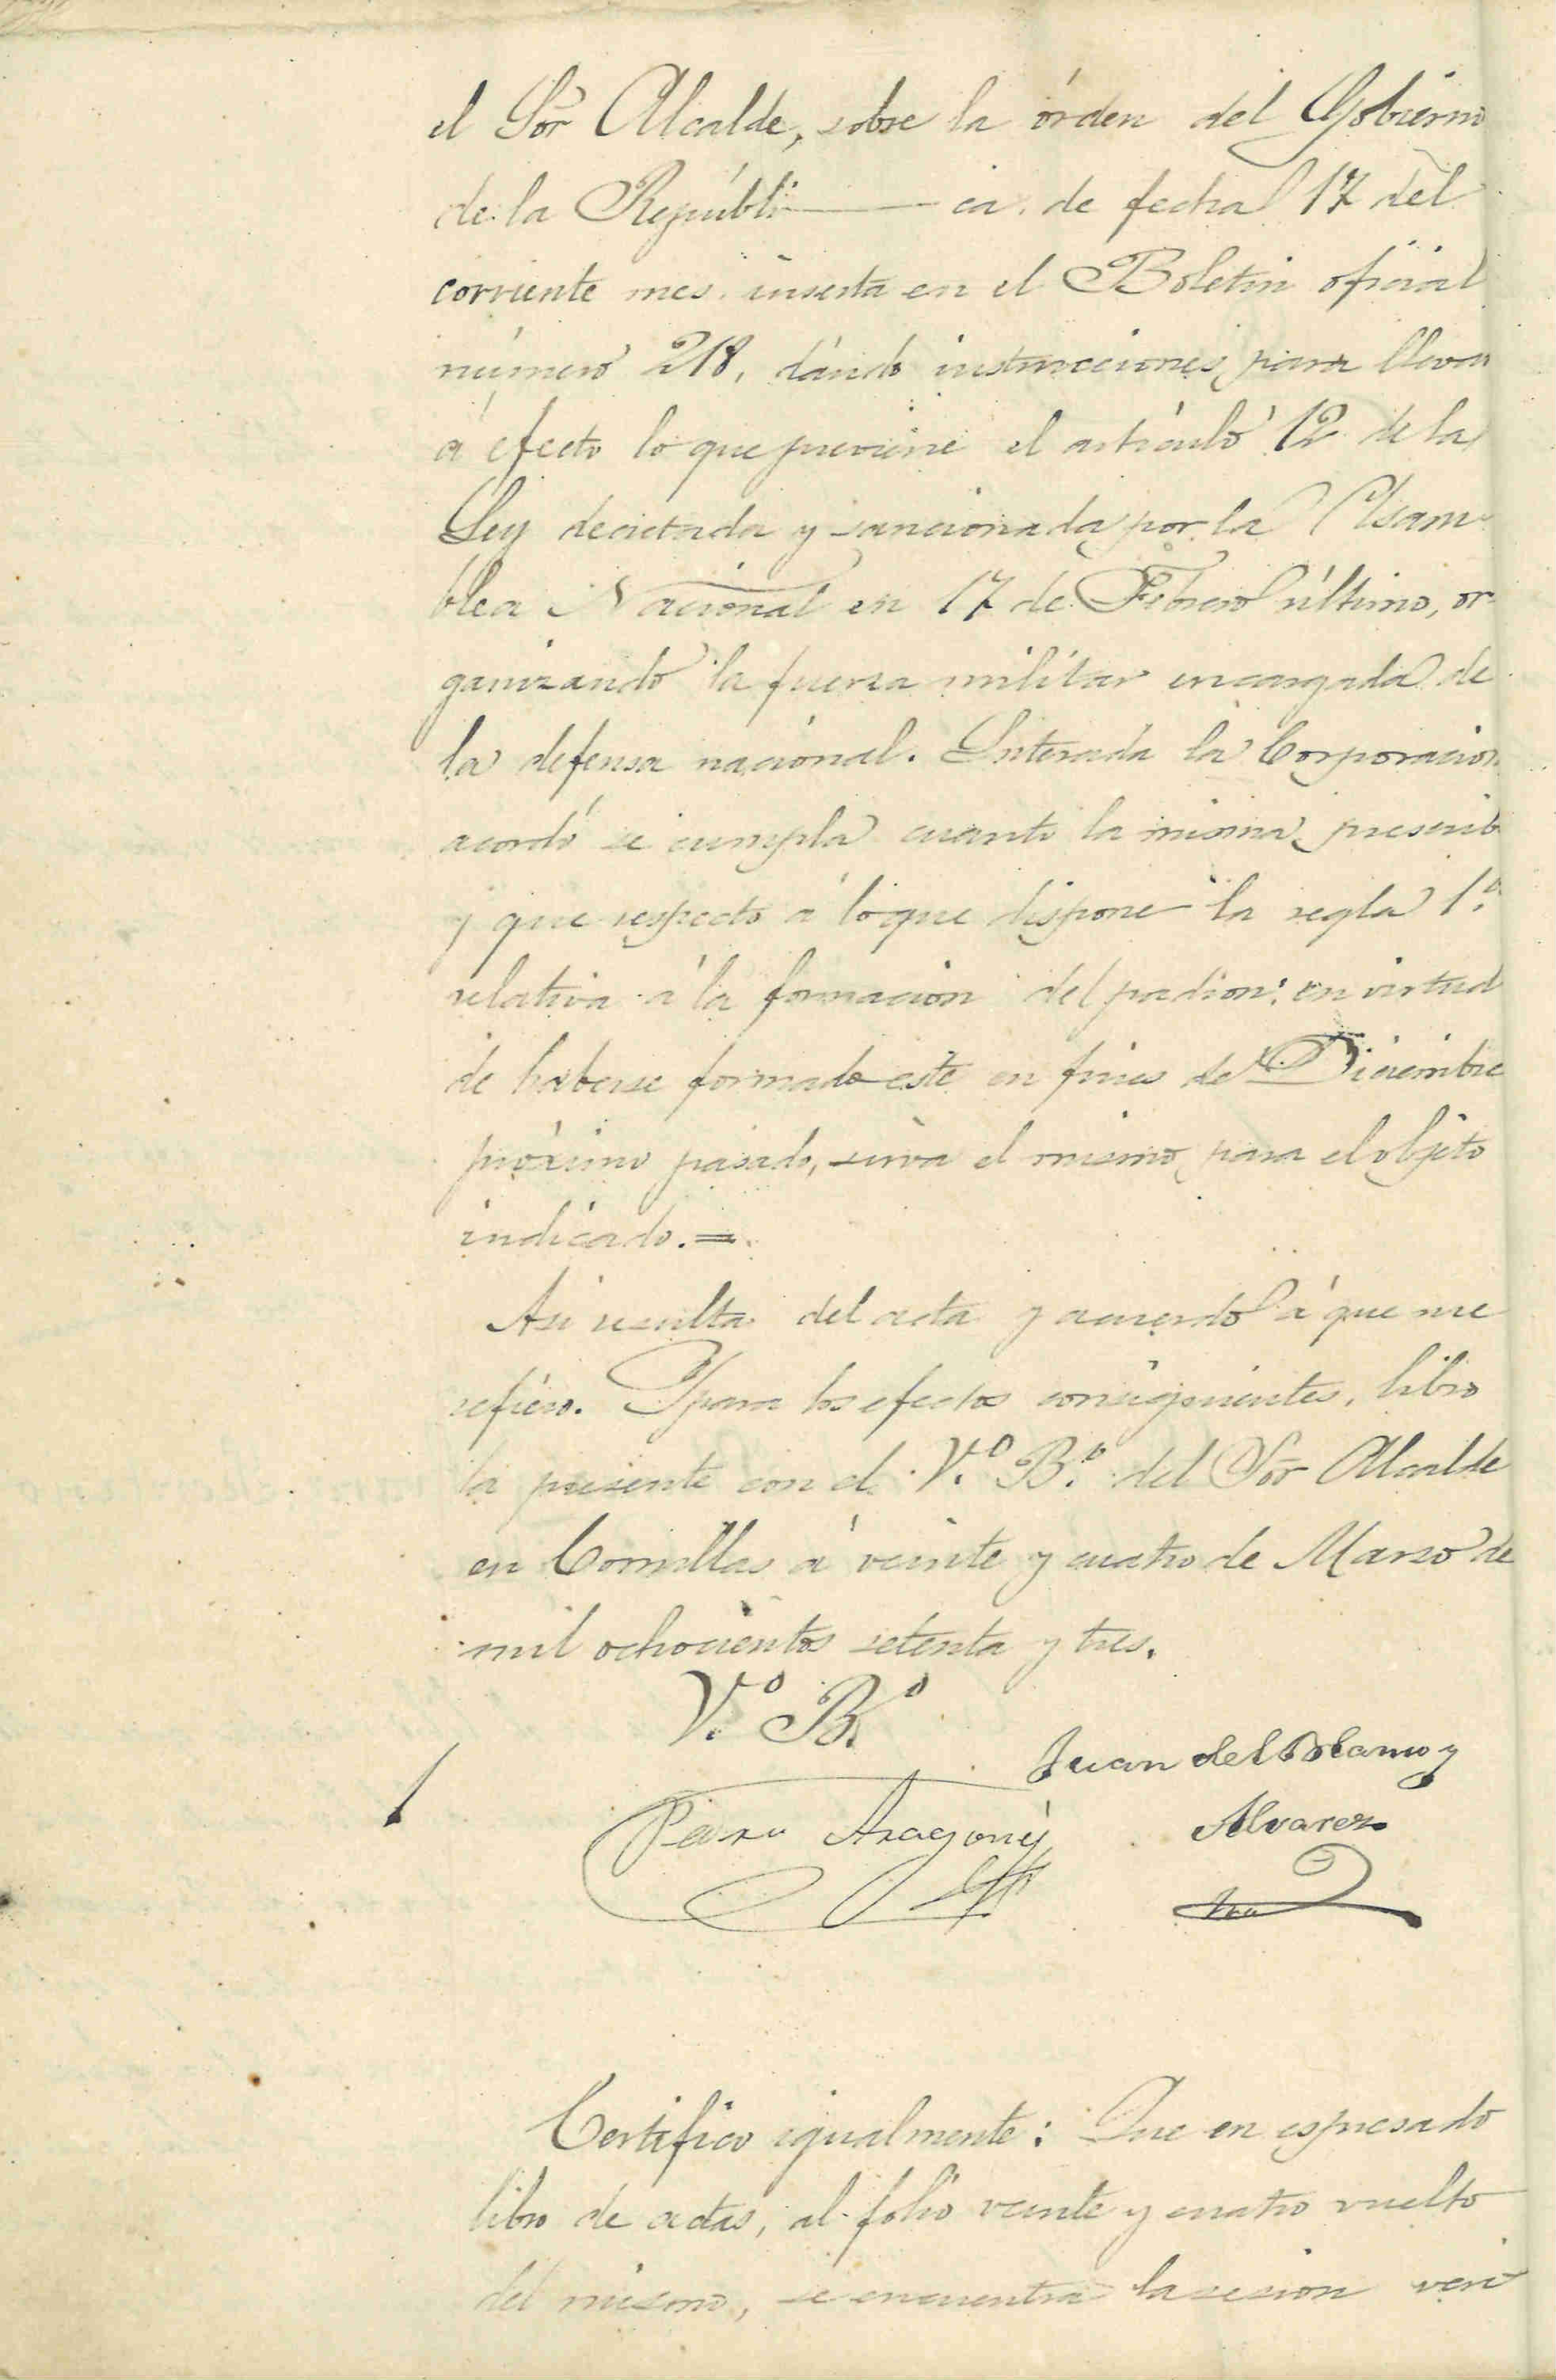 el Sor Alcalde, sobre la órden del Gobierno
de la Repúbli——ca de fecha 17 del
corriente mes inserta en el Boletin oficial
número 218, dándo instrucciones para llevar
á efecto lo que previene el artículo 12 de la
Ley decretada y sancionada por la Asam
blea Nacional en 17 de Febrero último, or
ganizando la fuerza militar encargada de
la defensa nacional. Enterada la Corporacion
acordó se cumpla cuanto la misma prescribe
y que respecto á lo que dispone la regla 1.ª
relativa á la formacion del padron: en virtud
de haberse formado este en fines de Diciembre
próximo pasado, sirva el mismo para el objeto
indicado.=
Asi resulta del acta y acuerdo á que me
refiero. Y para los efectos consiguientes, libro
la presente con el V.º B.º del Sor Alcalde
en Comillas á veinte y cuatro de Marzo de
mil ochocientos setenta y tres.
V.º B.º
Juan del Blamo y
Alvarez
Pedro Aragonés
Certifico igualmente: Que en espresado
libro de actas, al folio veinte y cuatro vuelto
del mismo, se encuentra la sesion veri